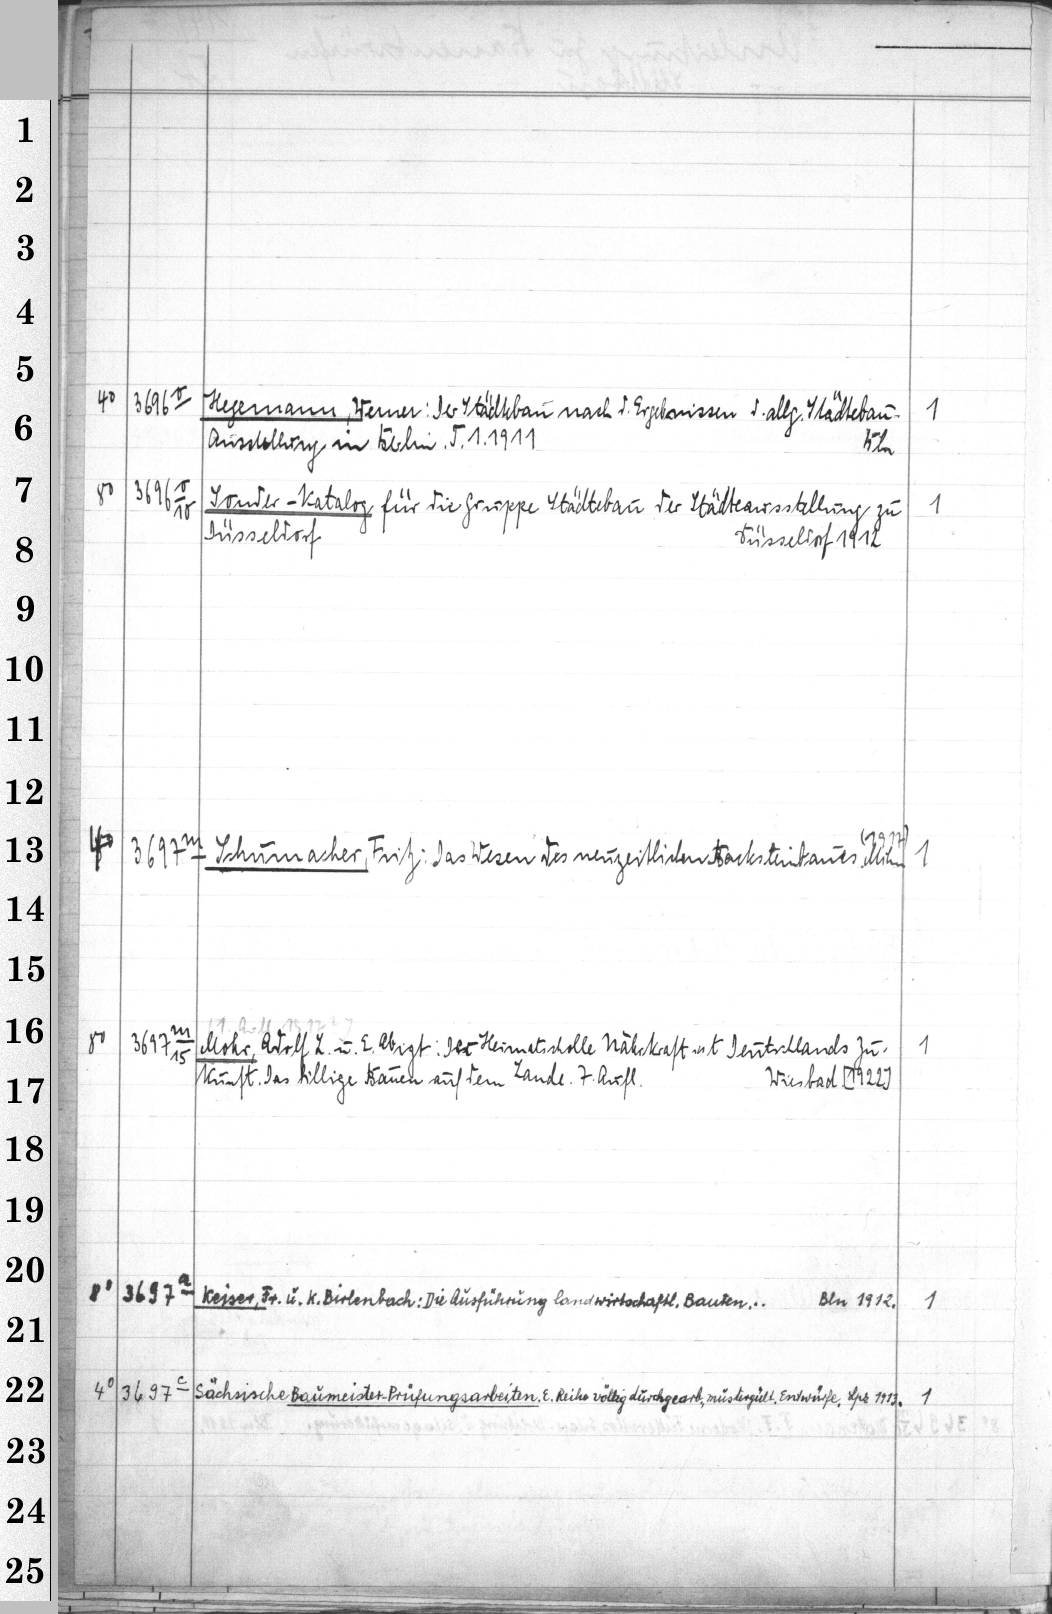 1
2
3
4
5
4° 3696 v Hegemann, Werner: Der Städtebau nach d. Ergebnissen d. allg. Städtebau- 1
6
Ausstellung in Berlin. T. 1. 1911 Bln
7
8° 3696 v/10 Sonder-Katalog für die Gruppe Städtebau der Städteausstellung zu 1
8
Düsseldorf Düsseldorf 1912
9
10
11
12
13
4° 3697 m Schumacher, Fritz: Das Wesen des neuzeitlichen Backsteinbaues. Mchn (1917) 1
14
15
16
8° 3697 m/15 Mohr, Adolf L. u. E. Abigt: Der Heimatscholle Nährkraft ist Deutschlands Zu- 1
17
kunft. Das billige Bauen auf dem Lande. 7. Aufl. Wiesbad [1922]
18
19
20
8° 3697 a Keiser, Fr. u. K. Birlenbach: Die Ausführung landwirtschaftl. Bauten... Bln 1912. 1
21
22
4° 3697 c Sächsische Baumeister-Prüfungsarbeiten. E. Reihe völlig durchgearb., mustergült. Entwürfe. Lpz 1913. 1
23
24
25